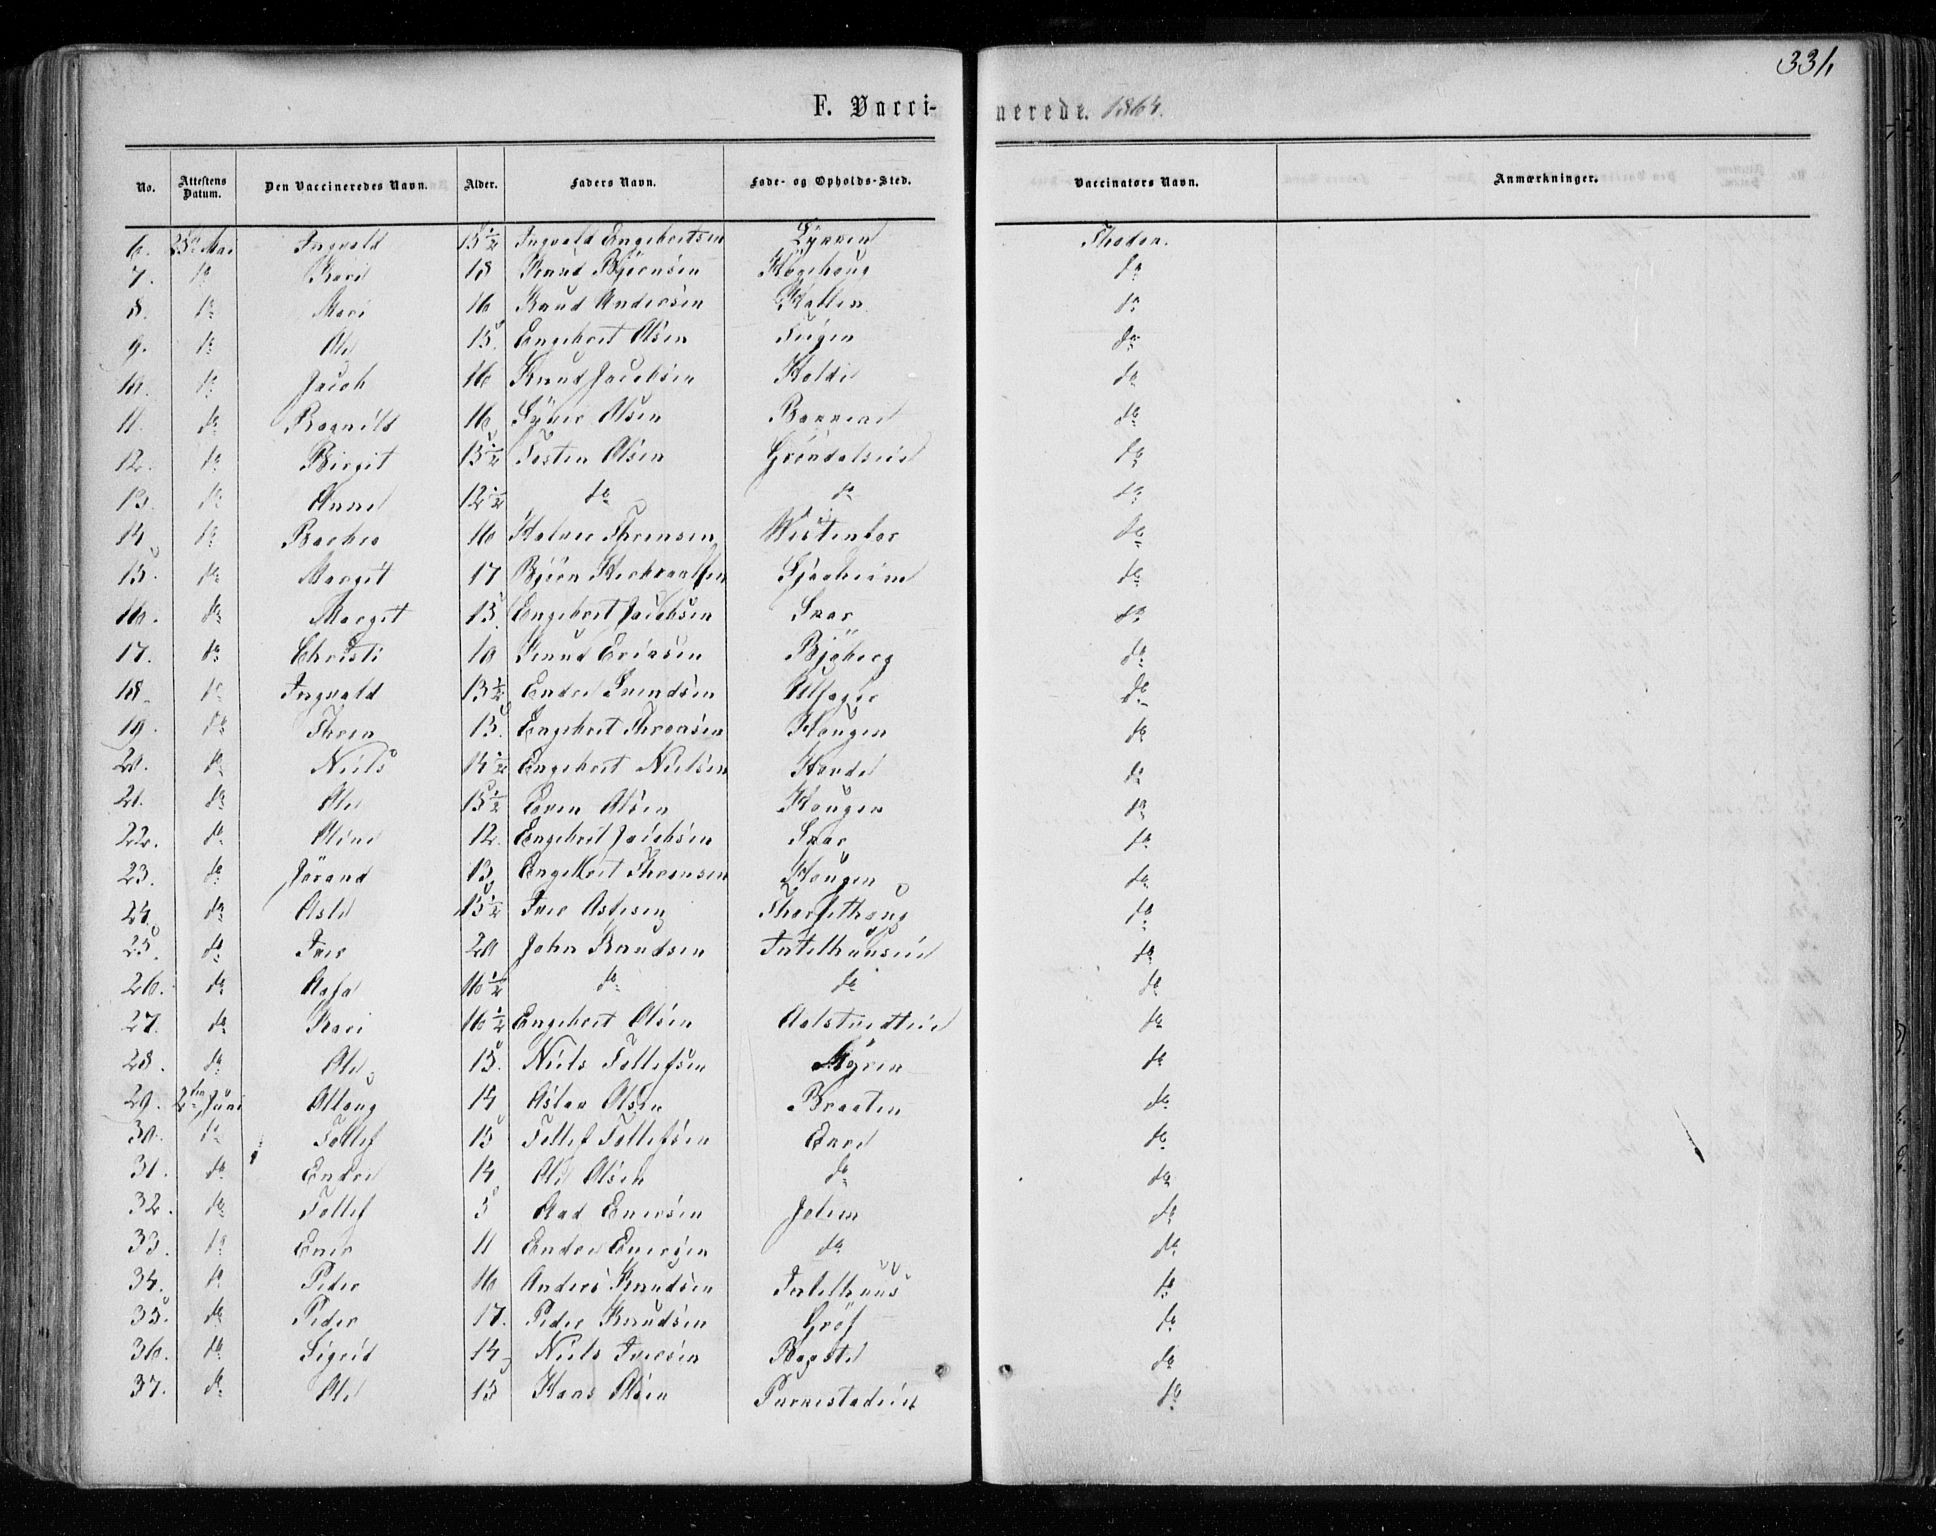 331.
F. Vacci- nerede. 1864.
No. Attestens Datum. Den Vaccineredes Navn. Alder. Faders Navn. Føde- og Opholds-Sted. Vaccinatørs Navn. Anmærkninger.
6. 25de Mai Ingvald 15½ Ingvald Engebretsen Thodon.
7. do Kari 18 Knud Bjørnsen Høgehoug do
8. do Mari 16 Knud Andersen do
9. do Ole 15. Engebret Olsen do
10. do Jacob 16 Knud Jacobsen Holde do
11. do Ragnild 16 Syver Olsen do
12. do Birgit 15½ Tosten Olsen Gröndalseie do
13. do Anne 12½ do do do
14 do Barbro 16 Halvor Thronsen Westenbor do
15. do Margit 17 Bjørn Sjaaheim do
16. do Margit 15. Engebret Jacobsen do
17. do Christi 10 Knud Ericsen Bjöberg do
18. do Ingvald 13½ Endre Svendsen Ulsager do
19. do Thron 15. Engebret Thronsen Hougen do
20. do Niels 14½ Engebret Nielsen do
21. do Ole 15½ Even Olsen Hougen do
22. do Oline 12. Engebret Jacobsen do
23. do Jörand 13. Engebret Thronsen Hougen do
24. do Asle 15½ Iver Aslesen do
25. do Iver 20 John Knudsen do
26. do 16½ do do do
27. do Kari 16½ Engebret Olsen do
28. do Ole 15. Niels Tollefsen Myren do
29. 2den Juni Alloug 14 Aslak Olsen Braaten do
30. do Tollef 15 Tollef Tollefsen do
31. do Endre 14 Ole Olsen do do
32. do Tollef 5 do
33. do 11 Endre do do
34. do Peder 16 Anders Knudsen do
35. do Peder 17. Peder Knudsen Gröf do
36. do Sigrid 14 Niels Iversen do
37. do Ole 15 Hans Olsen do